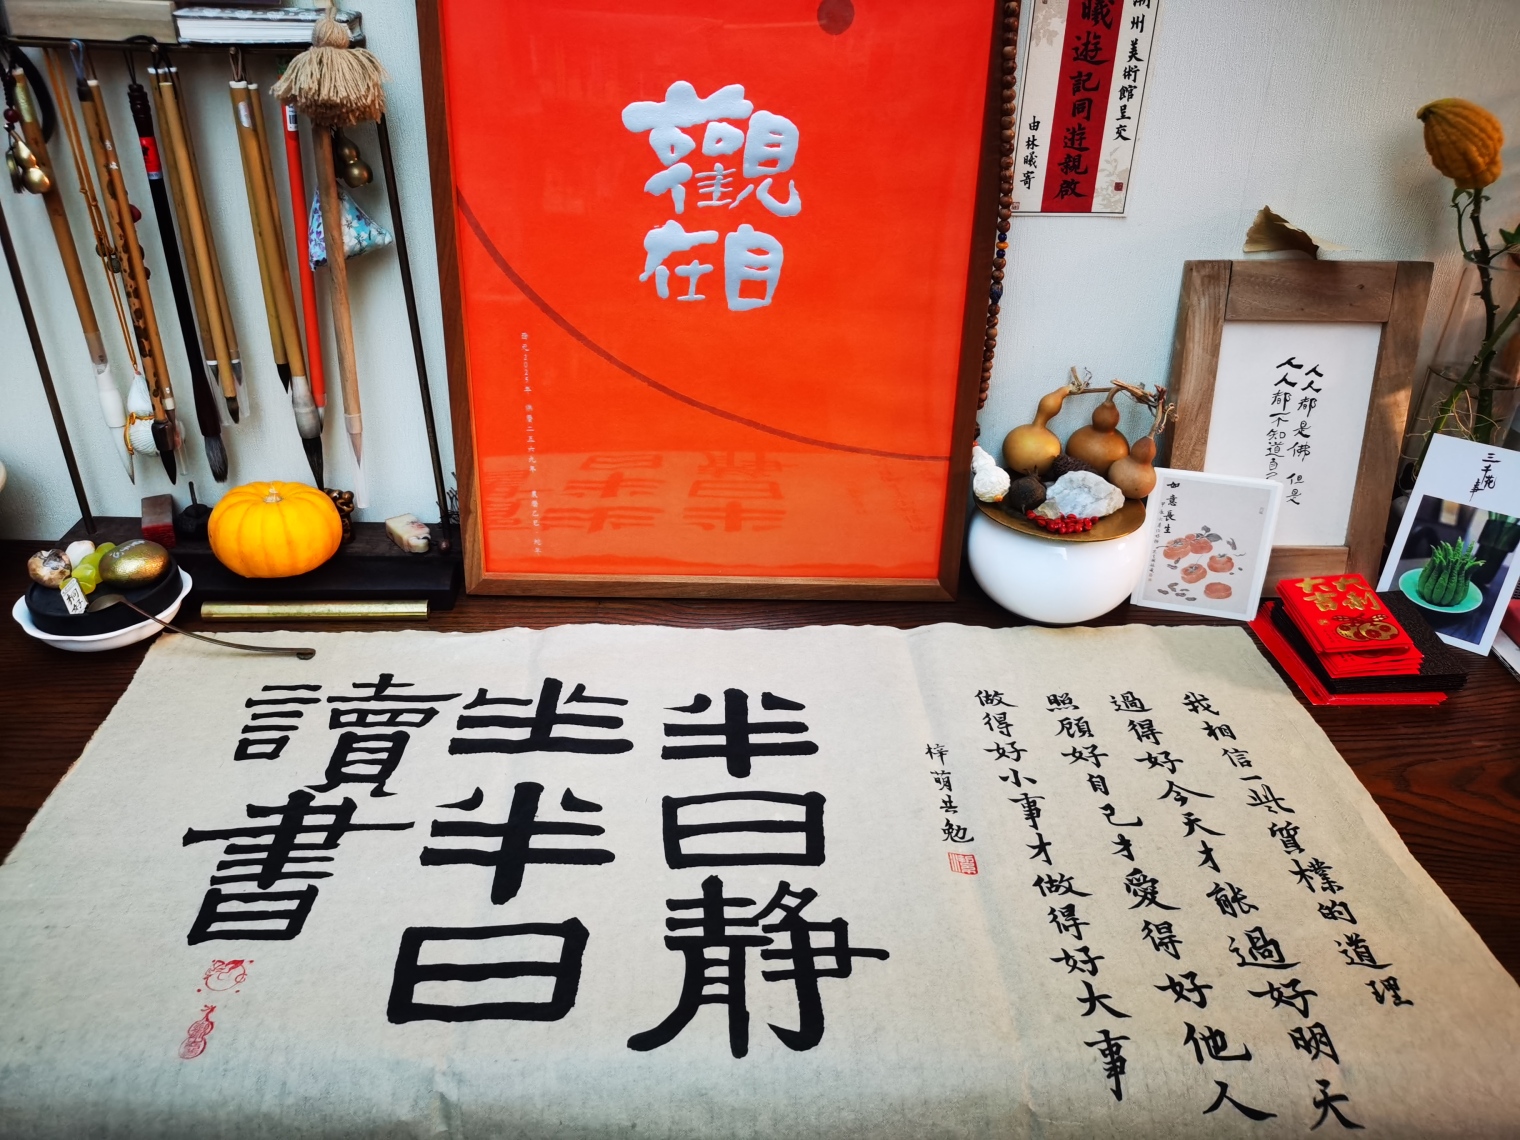 觀
自在
西元2025年 佛曆二五六九年 農曆乙巳 蛇年
潮州美術館呈交
曦遊記同遊親啟
由林曦寄
人人都是佛 但是
人人都不知道
如意長生
大吉大利
我相信一些質樸的道理
過得好今天才能過好明天
照顧好自己才愛得好他人
做得好小事才做得好大事
梓萌共勉
半日静
坐半日
讀書